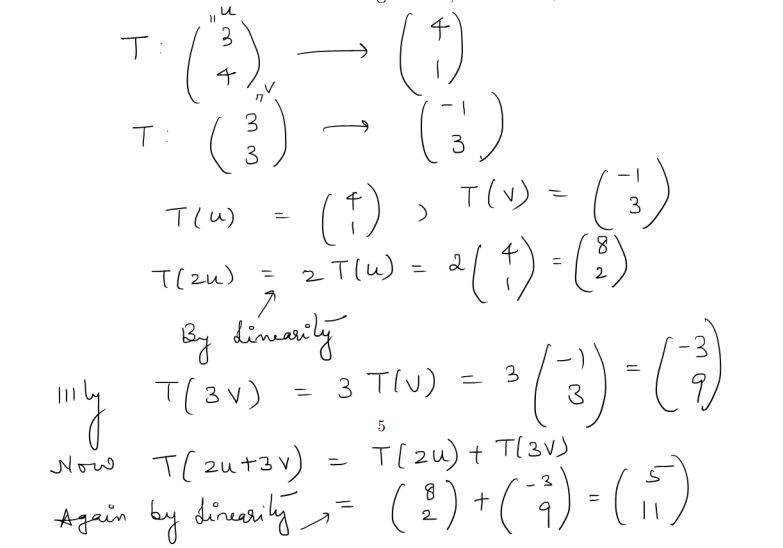 "u
T : (3 4) → (4 1)
"v
T : (3 3) → (-1 3)
T(u) = (4 1) , T(v) = (-1 3)
T(2u) = 2 T(u) = 2 (4 1) = (8 2)
By linearity
lllly T(3v) = 3 T(v) = 3 (-1 3) = (-3 9)
5
Now T(2u+3v) = T(2u) + T(3v)
Again by linearity → = (8 2) + (-3 9) = (5 11)